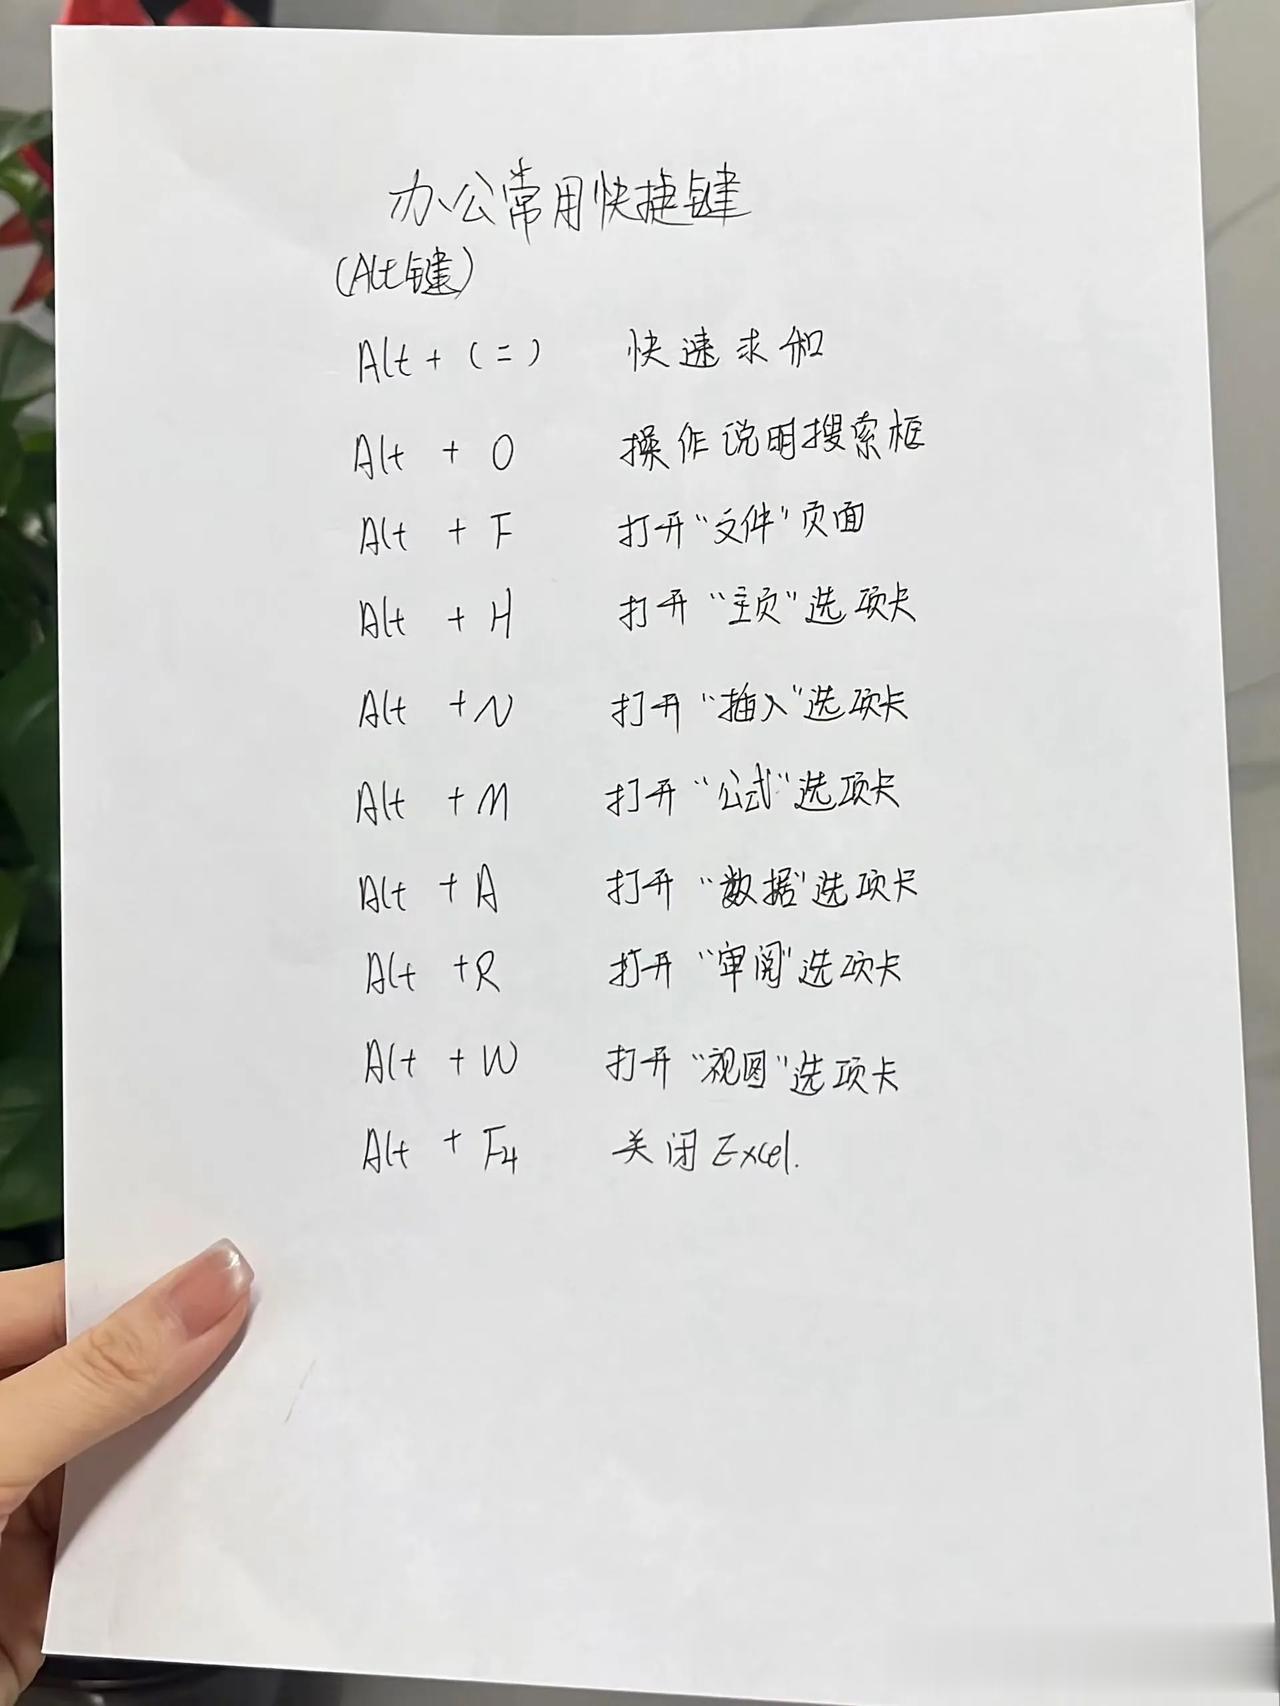 办公常用快捷键
(Alt键)
Alt + (=) 快速求和
Alt + O 操作说明搜索框
Alt + F 打开“文件”页面
Alt + H 打开“主页”选项卡
Alt + N 打开“插入”选项卡
Alt + M 打开“公式”选项卡
Alt + A 打开“数据”选项卡
Alt + R 打开“审阅”选项卡
Alt + W 打开“视图”选项卡
Alt + F4 关闭Excel.